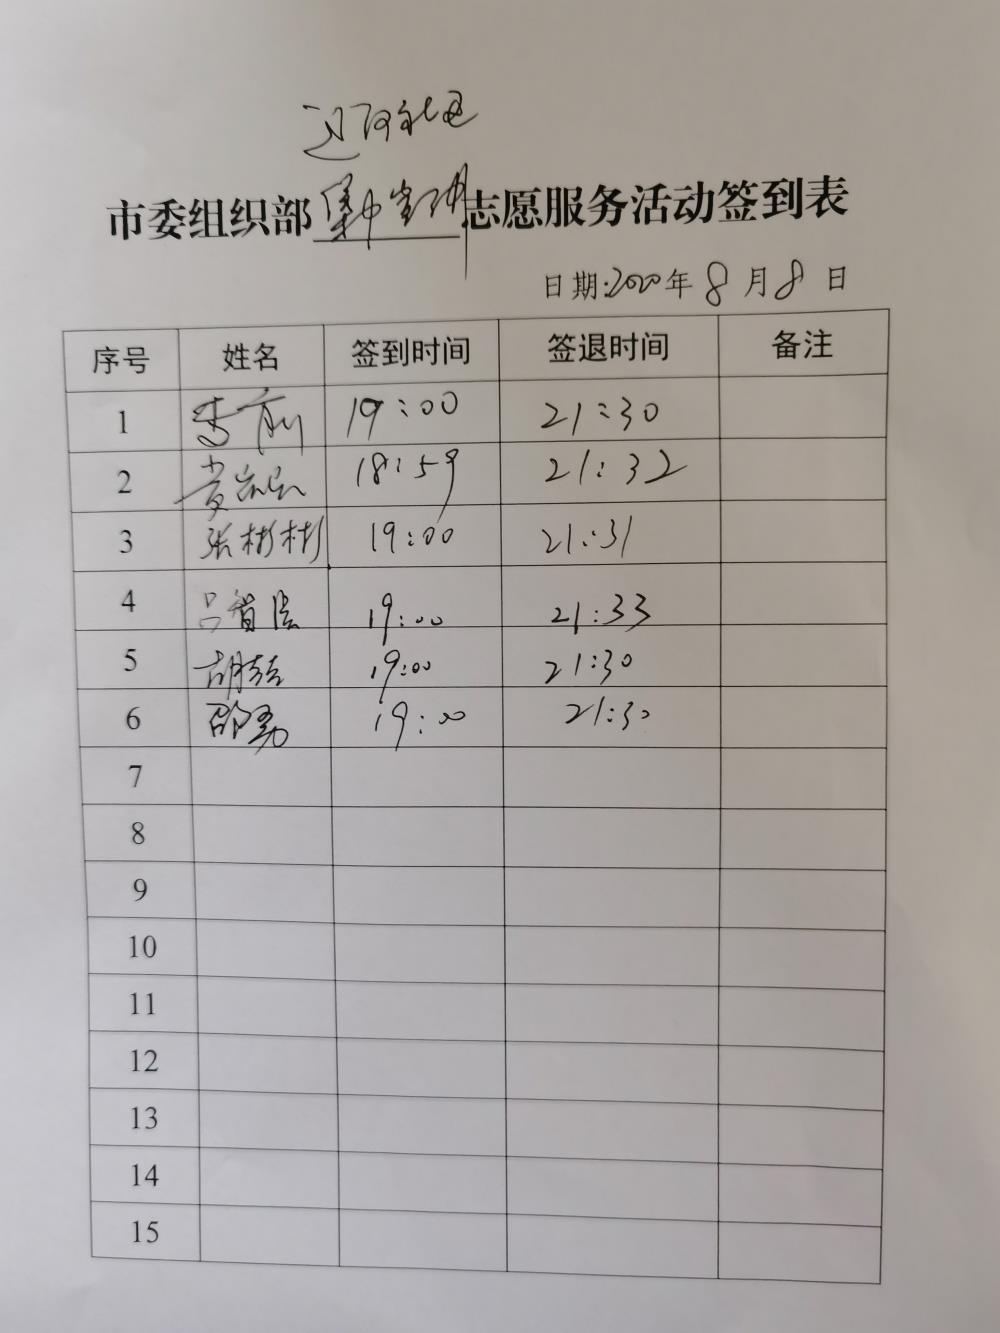 市委组织部集中宣讲志愿服务活动签到表
日期:2020年8月8日
序号 姓名 签到时间 签退时间 备注
1 李前 19:00 21:30
2 18:59 21:32
3 张彬彬 19:00 21:31
4 吕智 19:00 21:33
5 胡喆 19:00 21:30
6 邵勇 19:00 21:30
7
8
9
10
11
12
13
14
15